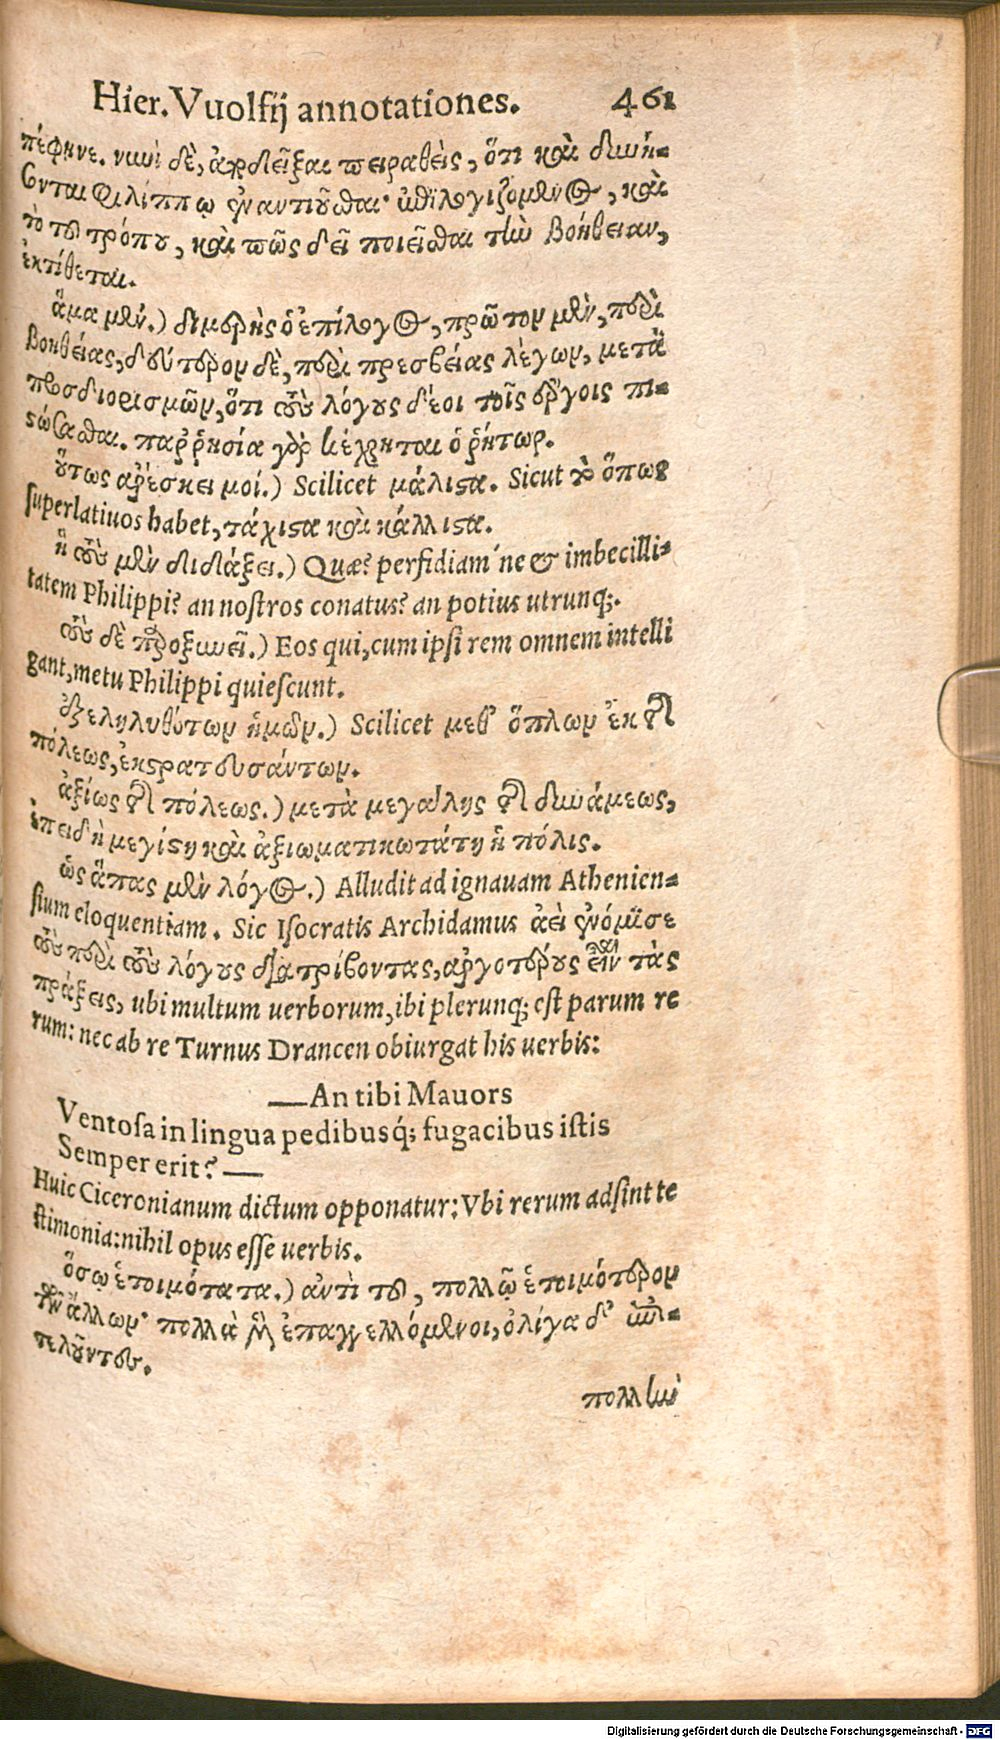 Hier. Vuolfij annotationes. 461
πέφηνε. νυνὶ δὲ, ἀποδεῖξαι πειραθεὶς, ὅτι καὶ δυνή-
σονται Φιλίππῳ ἐναντιοῦσθαι· καὶ
τὸ τοῦ τρόπου, καὶ πῶς δεῖ ποιεῖσθαι τὴν βοήθειαν,
ἐκτίθεται.
ἅμα μὲν.) διμερὴς ὁ ἐπίλογος, πρῶτον μὲν, περὶ
βοηθείας, δεύτερον δὲ, περὶ πρεσβείας λέγων, μετὰ
προσδιορισμῶν, ὅτι τοὺς λόγους δέοι τοῖς ἔργοις πι-
στώσασθαι. παῤῥησίᾳ γὰρ κέχρηται ὁ ῥήτωρ.
οὕτως ἀρέσκει μοί.) Scilicet μάλιστα. Sicut τὸ ὅπως
ſuperlatiuos habet, τάχιστα καὶ κάλλιστα.
ἢ τοὺς μὲν διδάξει.) Quæ? perfidiam´ne & imbecilli-
tatem Philippi? an noſtros conatus? an potius utrunq;.
τοὺς δὲ παροξυνεῖ.) Eos qui, cum ipſi rem omnem intelli
gant, metu Philippi quieſcunt.
ἐξεληλυθότων ἡμῶν.) Scilicet μεθ’ ὅπλων ἐκ τῆς
πόλεως, ἐκστρατευσάντων.
ἀξίως τῆς πόλεως.) μετὰ μεγάλης τῆς δυνάμεως,
ἐπειδὴ μεγίστη καὶ ἀξιωματικωτάτη ἡ πόλις.
ὡς ἅπας μὲν λόγος.) Alludit ad ignauam Athenien-
ſium eloquentiam. Sic Iſocratis Archidamus ἀεὶ ἐνόμισε
τοὺς περὶ τοὺς λόγους διατρίβοντας, ἀργοτέρους εἶναι τὰς
πράξεις, ubi multum uerborum, ibi plerunq; eſt parum re
rum: nec ab re Turnus Drancen obiurgat his uerbis:
—An tibi Mauors
Ventoſa in lingua pedibusq́; fugacibus iſtis
Semper erit? —
Huic Ciceronianum dictum opponatur: Vbi rerum adſint te
ſtimonia: nihil opus eſſe uerbis.
ὅσῳ ἑτοιμότατα.) ἀντὶ τοῦ, πολλῷ ἑτοιμότερον
τῶν ἄλλων· πολλὰ μὲν ἐπαγγελλόμενοι, ὀλίγα δ’ ἐπι-
τελοῦντες.
πολλὴν
Digitalisierung gefördert durch die Deutsche Forschungsgemeinschaft - DFG